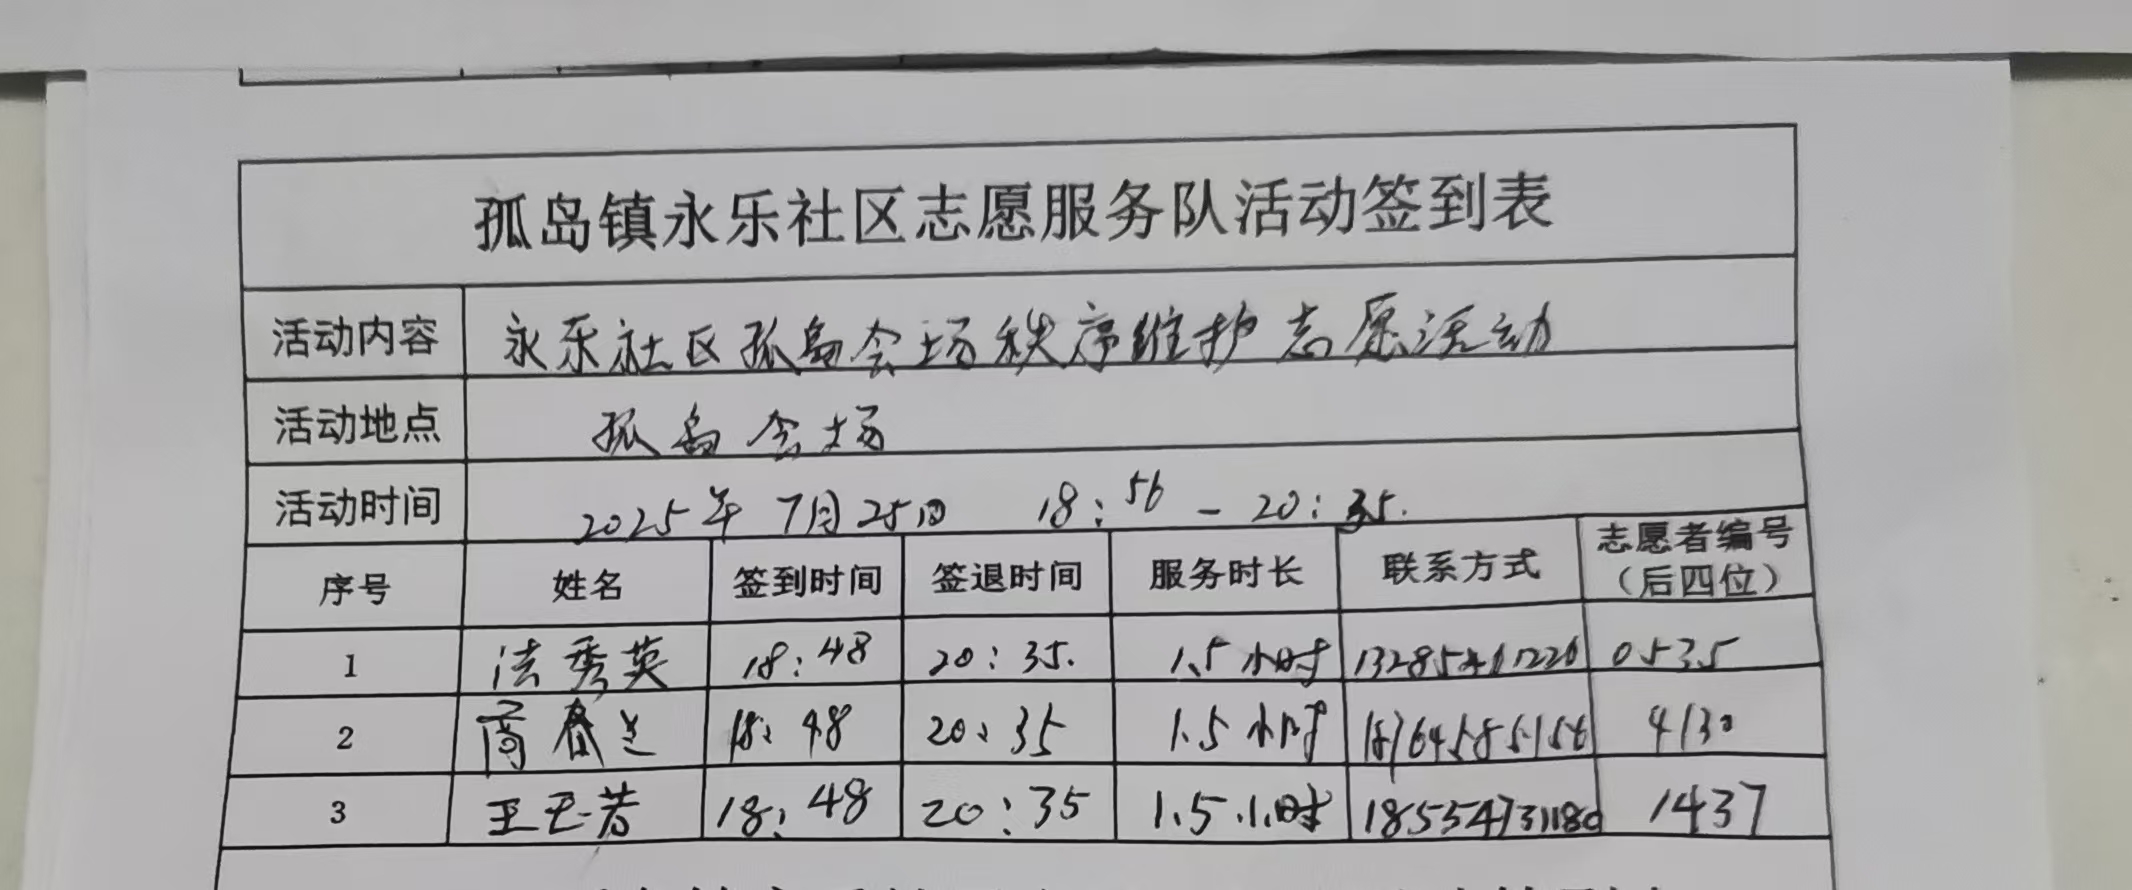 孤岛镇永乐社区志愿服务队活动签到表
活动内容 永乐社区孤岛会场秩序维护志愿活动
活动地点 孤岛会场
活动时间 2025年7月25日 18:56-20:35.
序号 姓名 签到时间 签退时间 服务时长 联系方式 志愿者编号（后四位）
1 法秀英 18:48 20:35. 1.5小时 0535
2 商春兰 18:48 20:35 1.5小时 4130
3 王玉芳 18:48 20:35 1.5小时 18554731180 1437